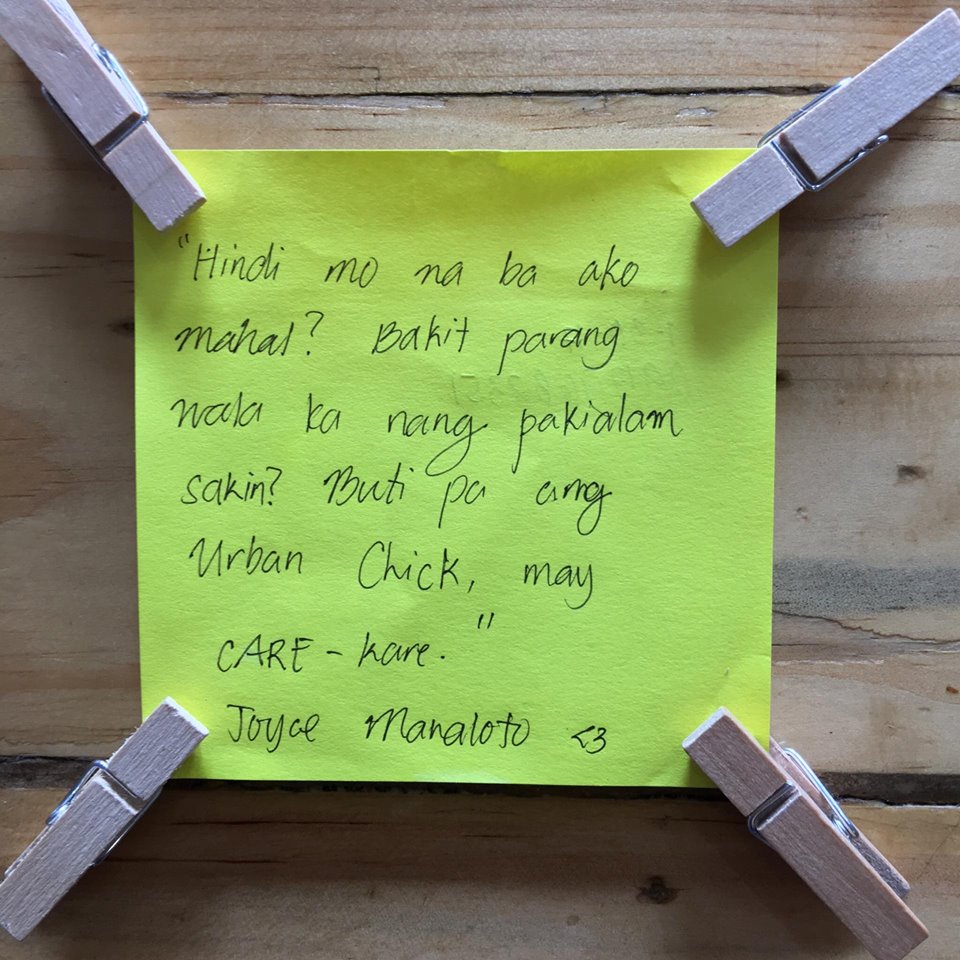 "Hindi mo na ba ako
mahal? Bakit parang
wala ka nang pakialam
sakin? Buti pa ang
Urban Chick, may
CARE - kare."
Joyce Manaloto <3